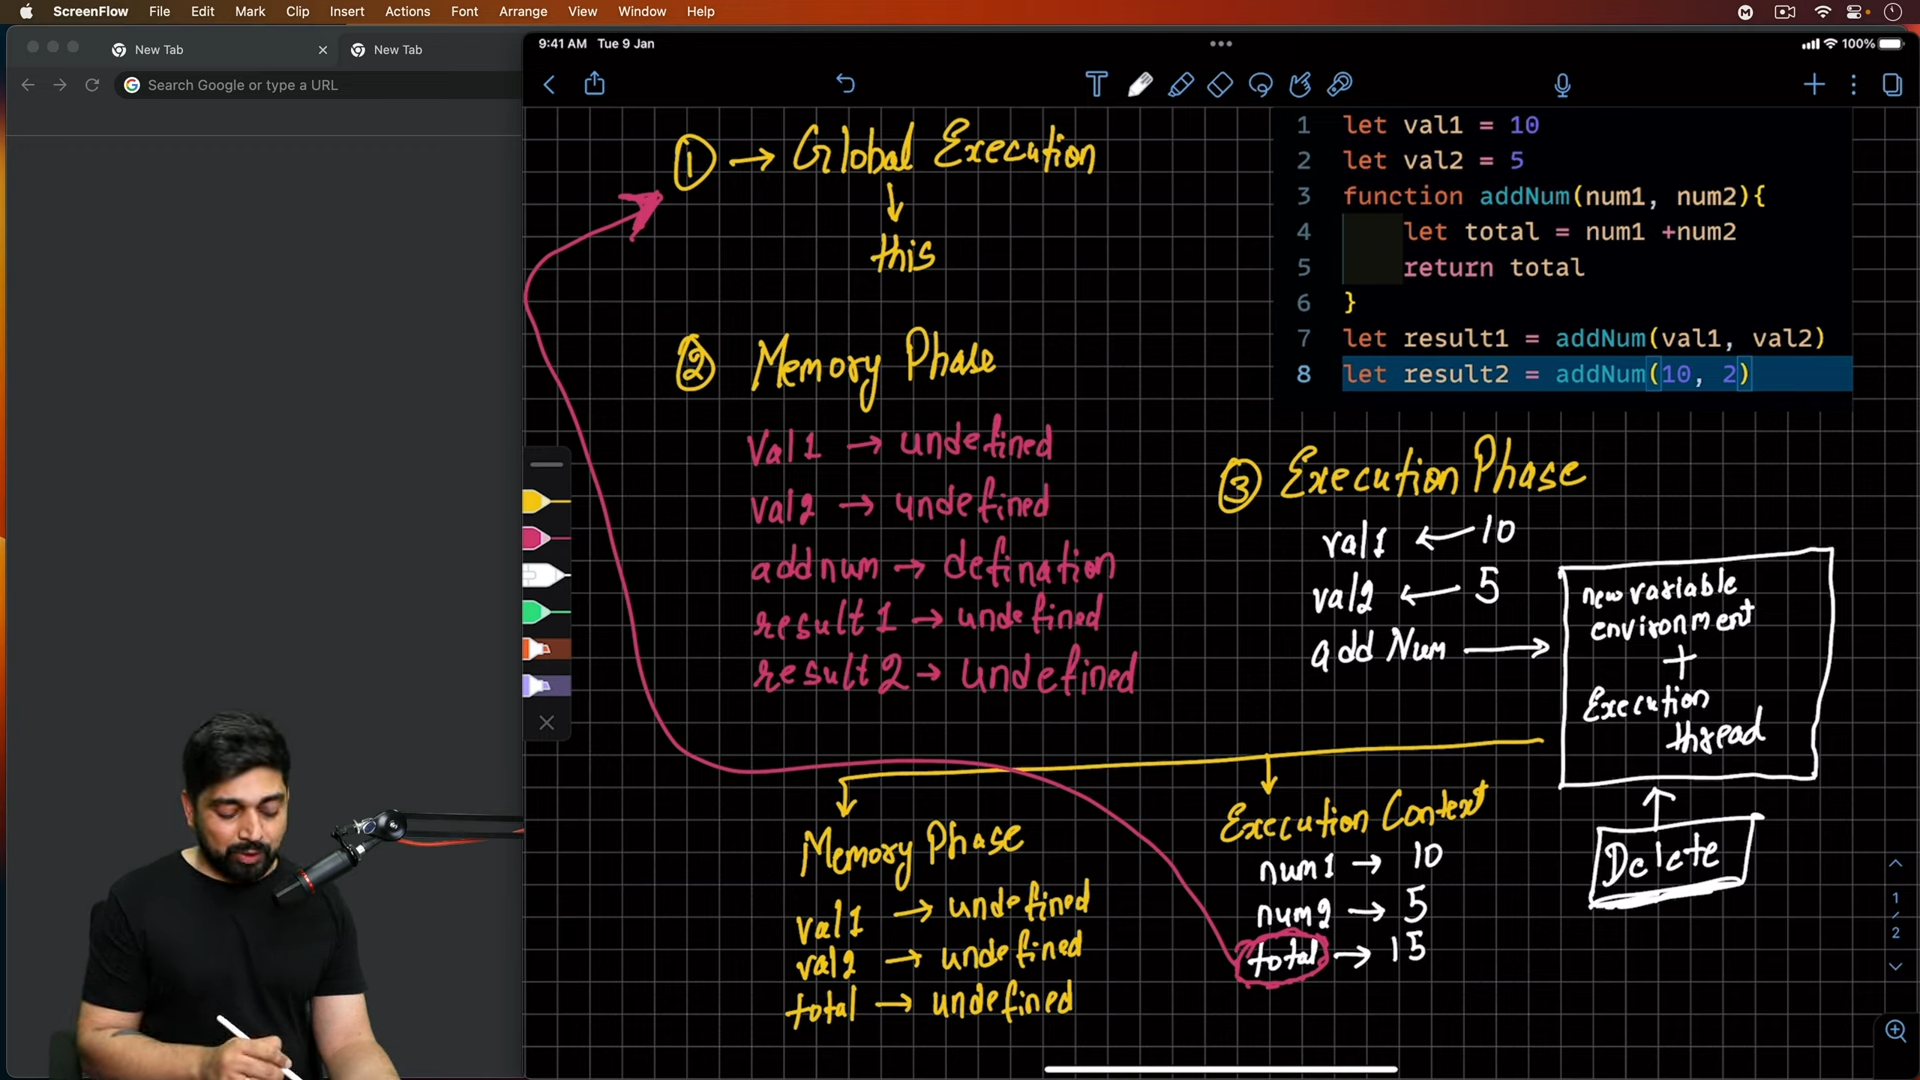 ScreenFlow File Edit Mark Clip Insert Actions Font Arrange View Window Help
New Tab
New Tab
Search Google or type a URL
9:41 AM Tue 9 Jan
100%
① → Global Execution
↓
this
② Memory Phase
Val1 → undefined
val2 → undefined
addnum → defination
result1 → undefined
result2 → undefined
1 let val1 = 10
2 let val2 = 5
3 function addNum(num1, num2){
4 let total = num1 +num2
5 return total
6 }
7 let result1 = addNum(val1, val2)
8 let result2 = addNum(10, 2)
③ Execution Phase
val1 ← 10
val2 ← 5
add Num →
new variable
environment
+
Execution
thread
Delete
Memory Phase
val1 → undefined
val2 → undefined
total → undefined
Execution Context
num1 → 10
num2 → 5
total → 15
1
/
2